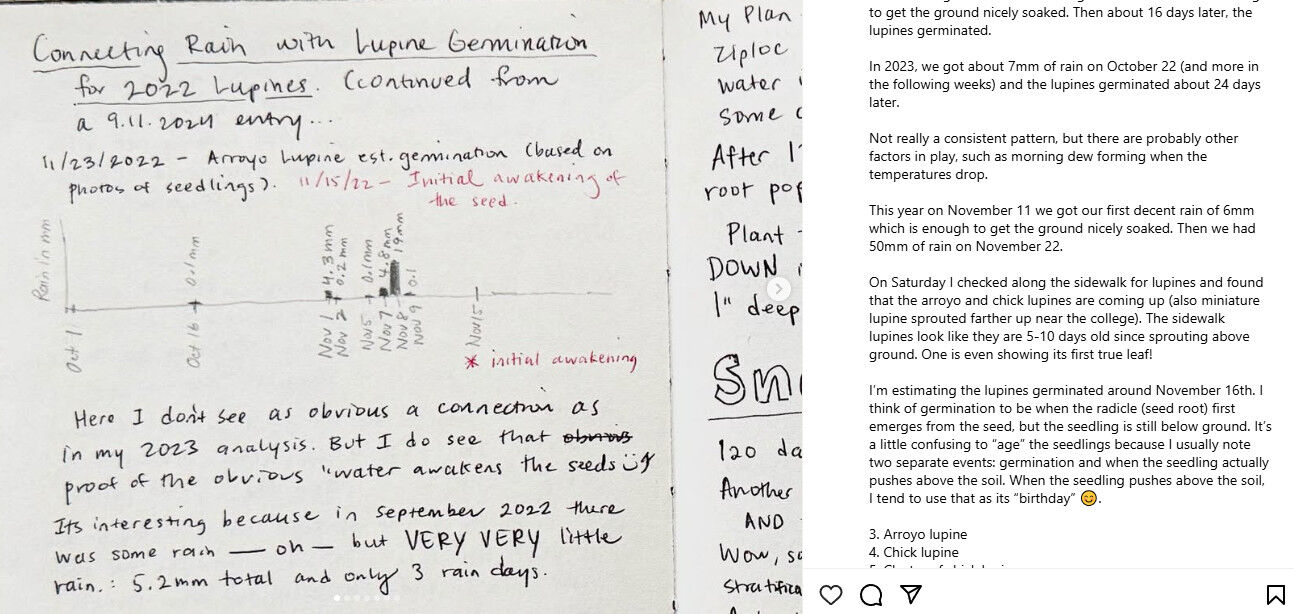 Connecting Rain with Lupine Germination
for 2022 Lupines. (continued from
a 9.11.2024 entry...
11/23/2022 - Arroyo Lupine est. germination (based on
photos of seedlings). 11/15/22 - Initial awakening of
the seed.
Rain in mm
Oct 1
Oct 16 0.1mm
Nov 1 4.3mm
Nov 2 0.2mm
Nov 5 0.1mm
Nov 7 4.8mm
Nov 8 19mm
Nov 9 0.1
Nov 15
* initial awakening
Here I don't see as obvious a connection as
in my 2023 analysis. But I do see that obvious
proof of the obvious "water awakens the seeds
Its interesting because in september 2022 there
was some rain — oh — but VERY VERY little
rain.: 5.2mm total and only 3 rain days.
My Plan
Ziploc
water
some
After 1
root pop
Plant
DOWN
1" deep
Sn
120 da
Another
AND
Wow, so
stratifica
to get the ground nicely soaked. Then about 16 days later, the
lupines germinated.
In 2023, we got about 7mm of rain on October 22 (and more in
the following weeks) and the lupines germinated about 24 days
later.
Not really a consistent pattern, but there are probably other
factors in play, such as morning dew forming when the
temperatures drop.
This year on November 11 we got our first decent rain of 6mm
which is enough to get the ground nicely soaked. Then we had
50mm of rain on November 22.
On Saturday I checked along the sidewalk for lupines and found
that the arroyo and chick lupines are coming up (also miniature
lupine sprouted farther up near the college). The sidewalk
lupines look like they are 5-10 days old since sprouting above
ground. One is even showing its first true leaf!
I'm estimating the lupines germinated around November 16th. I
think of germination to be when the radicle (seed root) first
emerges from the seed, but the seedling is still below ground. It's
a little confusing to "age" the seedlings because I usually note
two separate events: germination and when the seedling actually
pushes above the soil. When the seedling pushes above the soil,
I tend to use that as its "birthday" 😊.
3. Arroyo lupine
4. Chick lupine